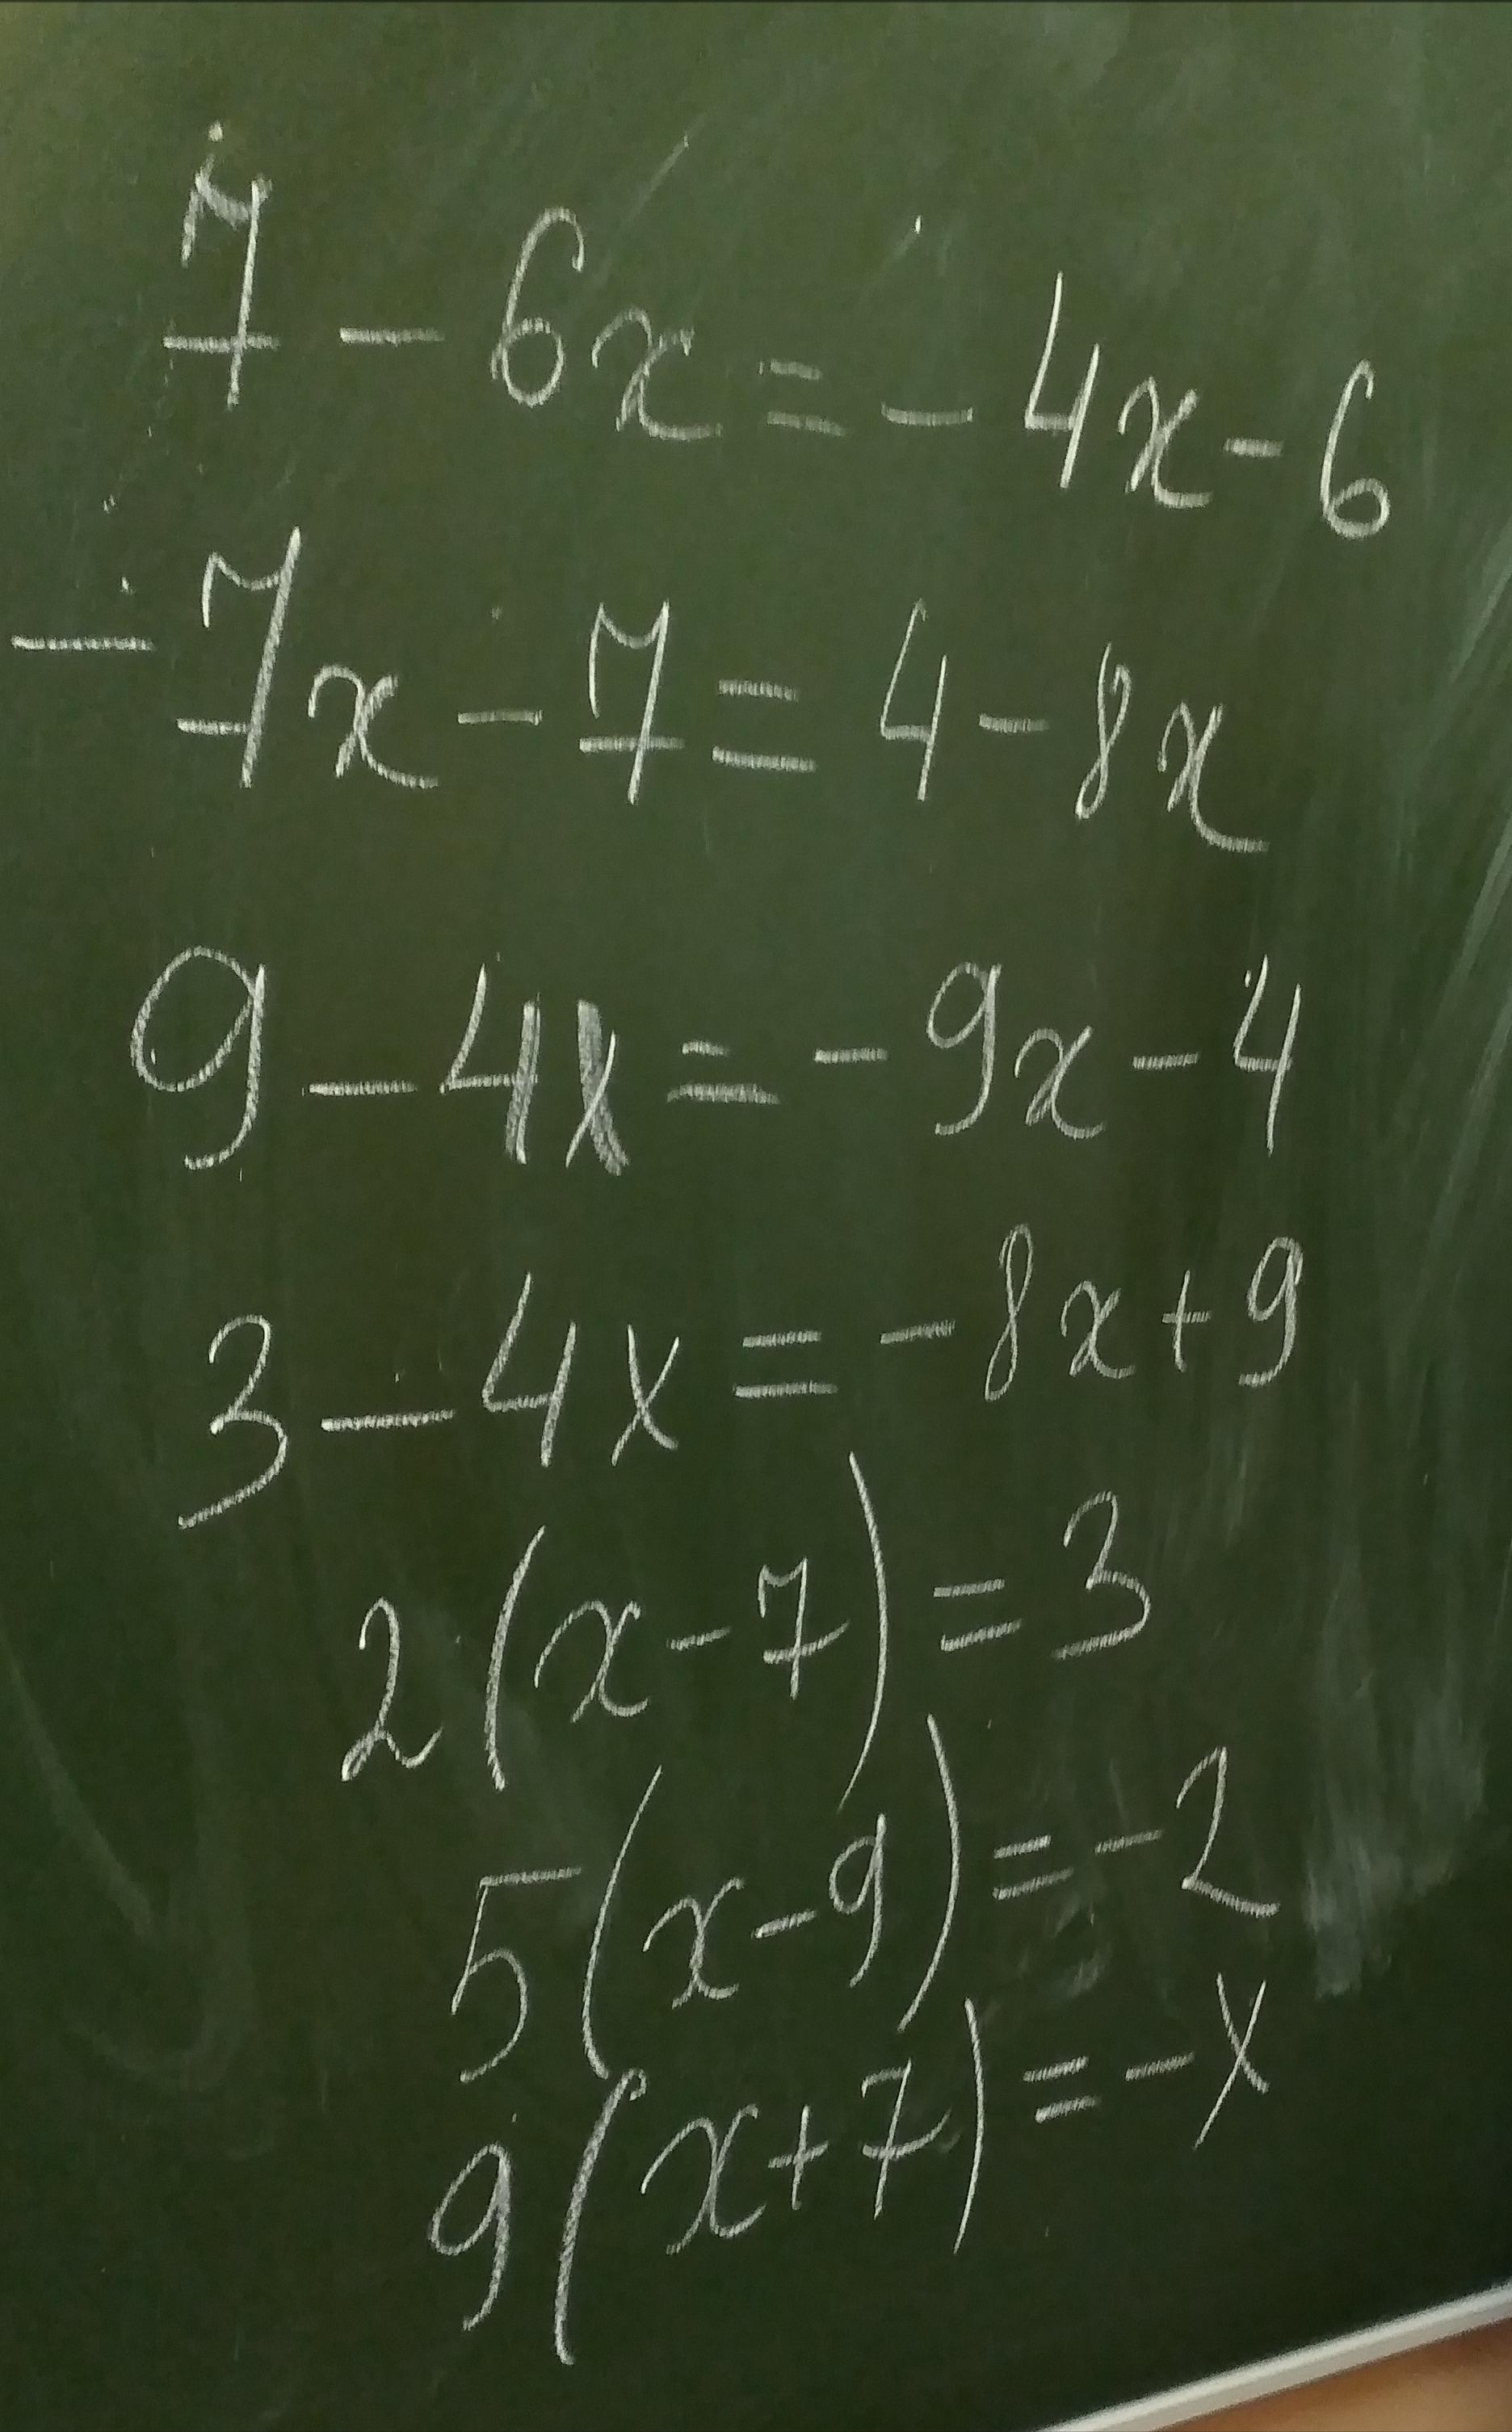 7 - 6x = - 4x - 6
- 7x - 7 = 4 - 8x
9 - 4x = - 9x - 4
3 - 4x = - 8x + 9
2(x - 7) = 3
5(x - 9) = - 2
9(x + 7) = - x